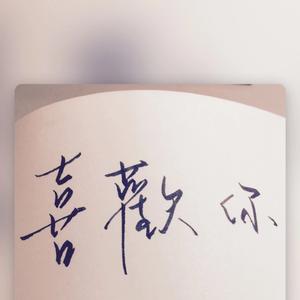 喜歡你